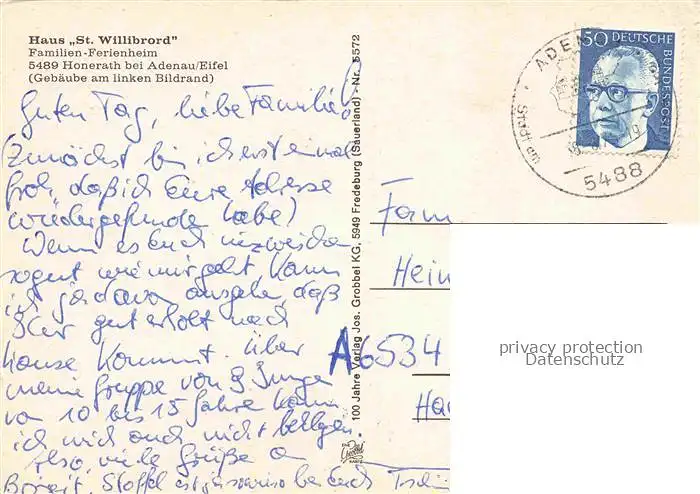 Haus „St. Willibrord"
Familien-Ferienheim
5489 Honerath bei Adenau/Eifel
(Gebäube am linken Bildrand)
Guten Tag, liebe Familie
(Zunächst bin ich erst einmal
froh, daß ich Eure Adresse
wiedergefunden habe)
Wenn es Euch inzwischen
so gut wie mir geht, kann
ich ja davon ausgehen, daß
Ihr gut erholt nach
Hause kommt. Über
meine Gruppe von 9 Jungen
von 10 bis 15 Jahre kann
ich mich auch nicht beklagen.
Also, viele Grüße an
Birgit, Stoffel ist ja sowieso bei Euch
100 Jahre Verlag Jos. Grobbel KG, 5949 Fredeburg (Sauerland) - Nr. 5572
50 DEUTSCHE BUNDESPOST
ADEN
5488
Fam
Hein
A6534
privacy protection
Datenschutz